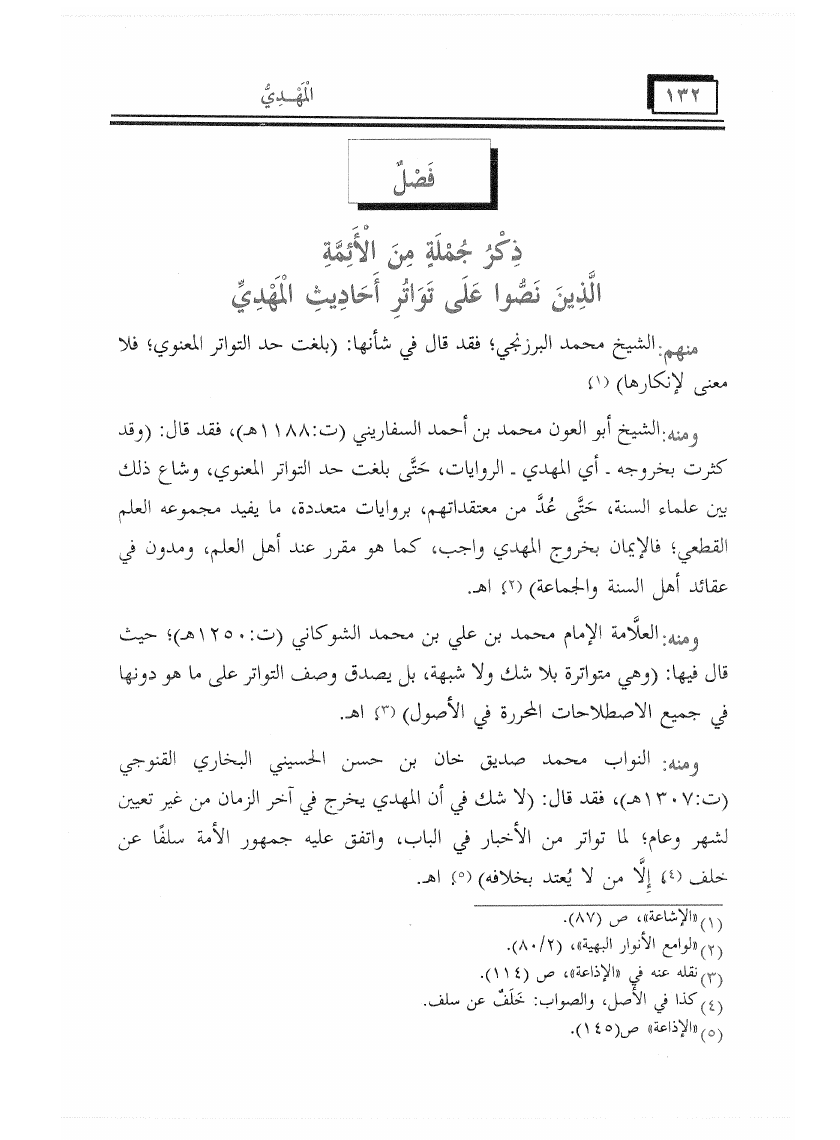 ١٣٢
المَهْـدِيُّ
فَصْلٌ
ذِكْرُ جُمْلَةٍ مِنَ الْأَئِمَّةِ
الَّذِينَ نَصُّوا عَلَى تَوَاتُرِ أَحَادِيثِ الْمَهْدِيِّ
منهم: الشيخ محمد البرزنجي؛ فقد قال في شأنها: (بلغت حد التواتر المعنوي؛ فلا
معنى لإنكارها) (١)
ومنه: الشيخ أبو العون محمد بن أحمد السفاريني (ت:١١٨٨هـ)، فقد قال: (وقد
كثرت بخروجه ـ أي المهدي ـ الروايات، حَتَّى بلغت حد التواتر المعنوي، وشاع ذلك
بين علماء السنة، حَتَّى عُدَّ من معتقداتهم، بروايات متعددة، ما يفيد مجموعه العلم
القطعي؛ فالإيمان بخروج المهدي واجب، كما هو مقرر عند أهل العلم، ومدون في
عقائد أهل السنة والجماعة) (٢) اهـ.
ومنه: العلَّامة الإمام محمد بن علي بن محمد الشوكاني (ت:١٢٥٠هـ)؛ حيث
قال فيها: (وهي متواترة بلا شك ولا شبهة، بل يصدق وصف التواتر على ما هو دونها
في جميع الاصطلاحات المحررة في الأصول) (٣) اهـ.
ومنه: النواب محمد صديق خان بن حسن الحسيني البخاري القنوجي
(ت:١٣٠٧هـ)، فقد قال: (لا شك في أن المهدي يخرج في آخر الزمان من غير تعيين
لشهر وعام؛ لما تواتر من الأخبار في الباب، واتفق عليه جمهور الأمة سلفًا عن
خلف (٤) إِلَّا من لا يُعتد بخلافه) (٥) اهـ.
(١) «الإشاعة»، ص (٨٧).
(٢) «لوامع الأنوار البهية»، (٨٠/٢).
(٣) نقله عنه في «الإذاعة»، ص (١١٤).
(٤) كذا في الأصل، والصواب: خَلَفٌ عن سلف.
(٥) «الإذاعة» ص(١٤٥).